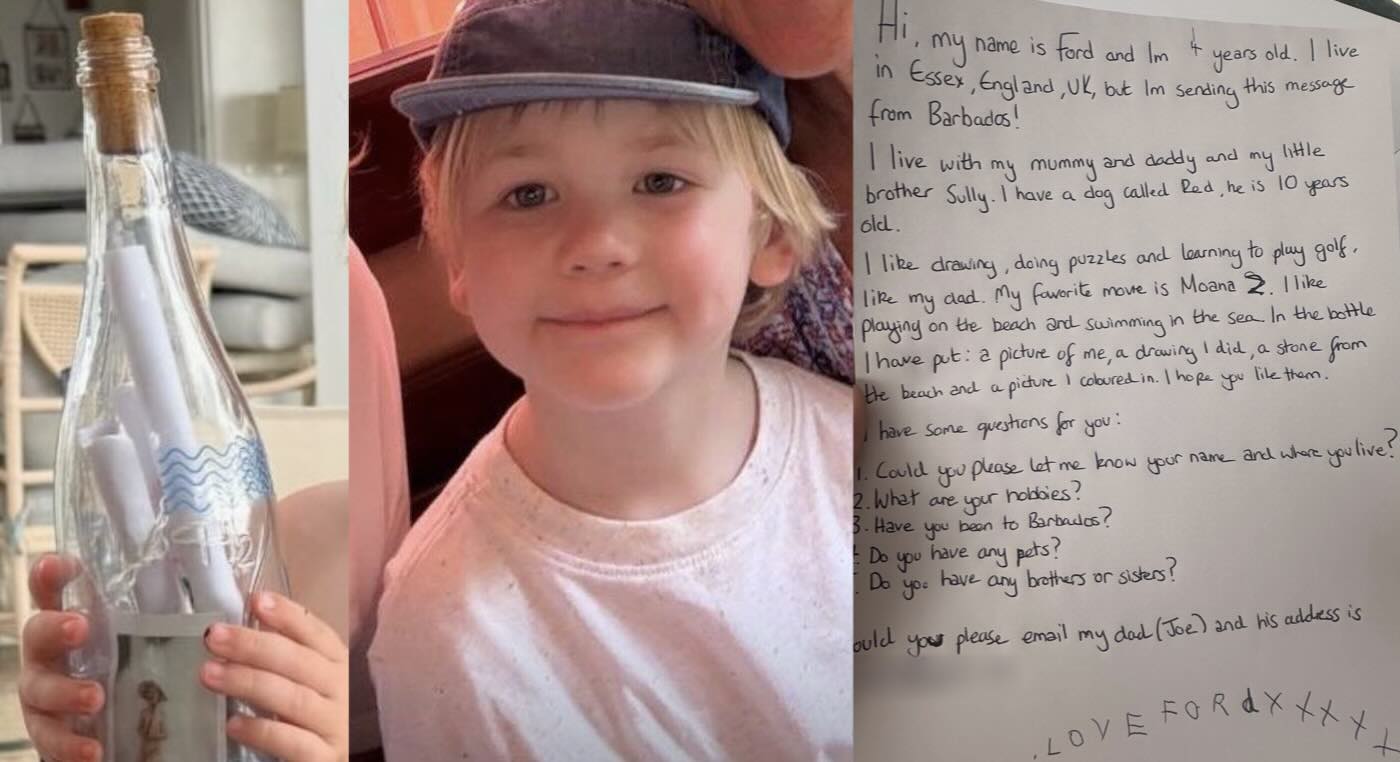 Hi, my name is Ford and Im 4 years old. I live
in Essex, England, UK, but Im sending this message
from Barbados!
I live with my mummy and daddy and my little
brother Sully. I have a dog called Red, he is 10 years
old.
I like drawing, doing puzzles and learning to play golf,
like my dad. My favorite move is Moana 2. I like
playing on the beach and swimming in the sea. In the bottle
I have put: a picture of me, a drawing I did, a stone from
the beach and a picture I coloured in. I hope you like them.
I have some questions for you:
1. Could you please let me know your name and where you live?
2. What are your hobbies?
3. Have you been to Barbados?
Do you have any pets?
. Do you have any brothers or sisters?
ould you please email my dad (Joe) and his address is
. LOVE FORd X X X X X